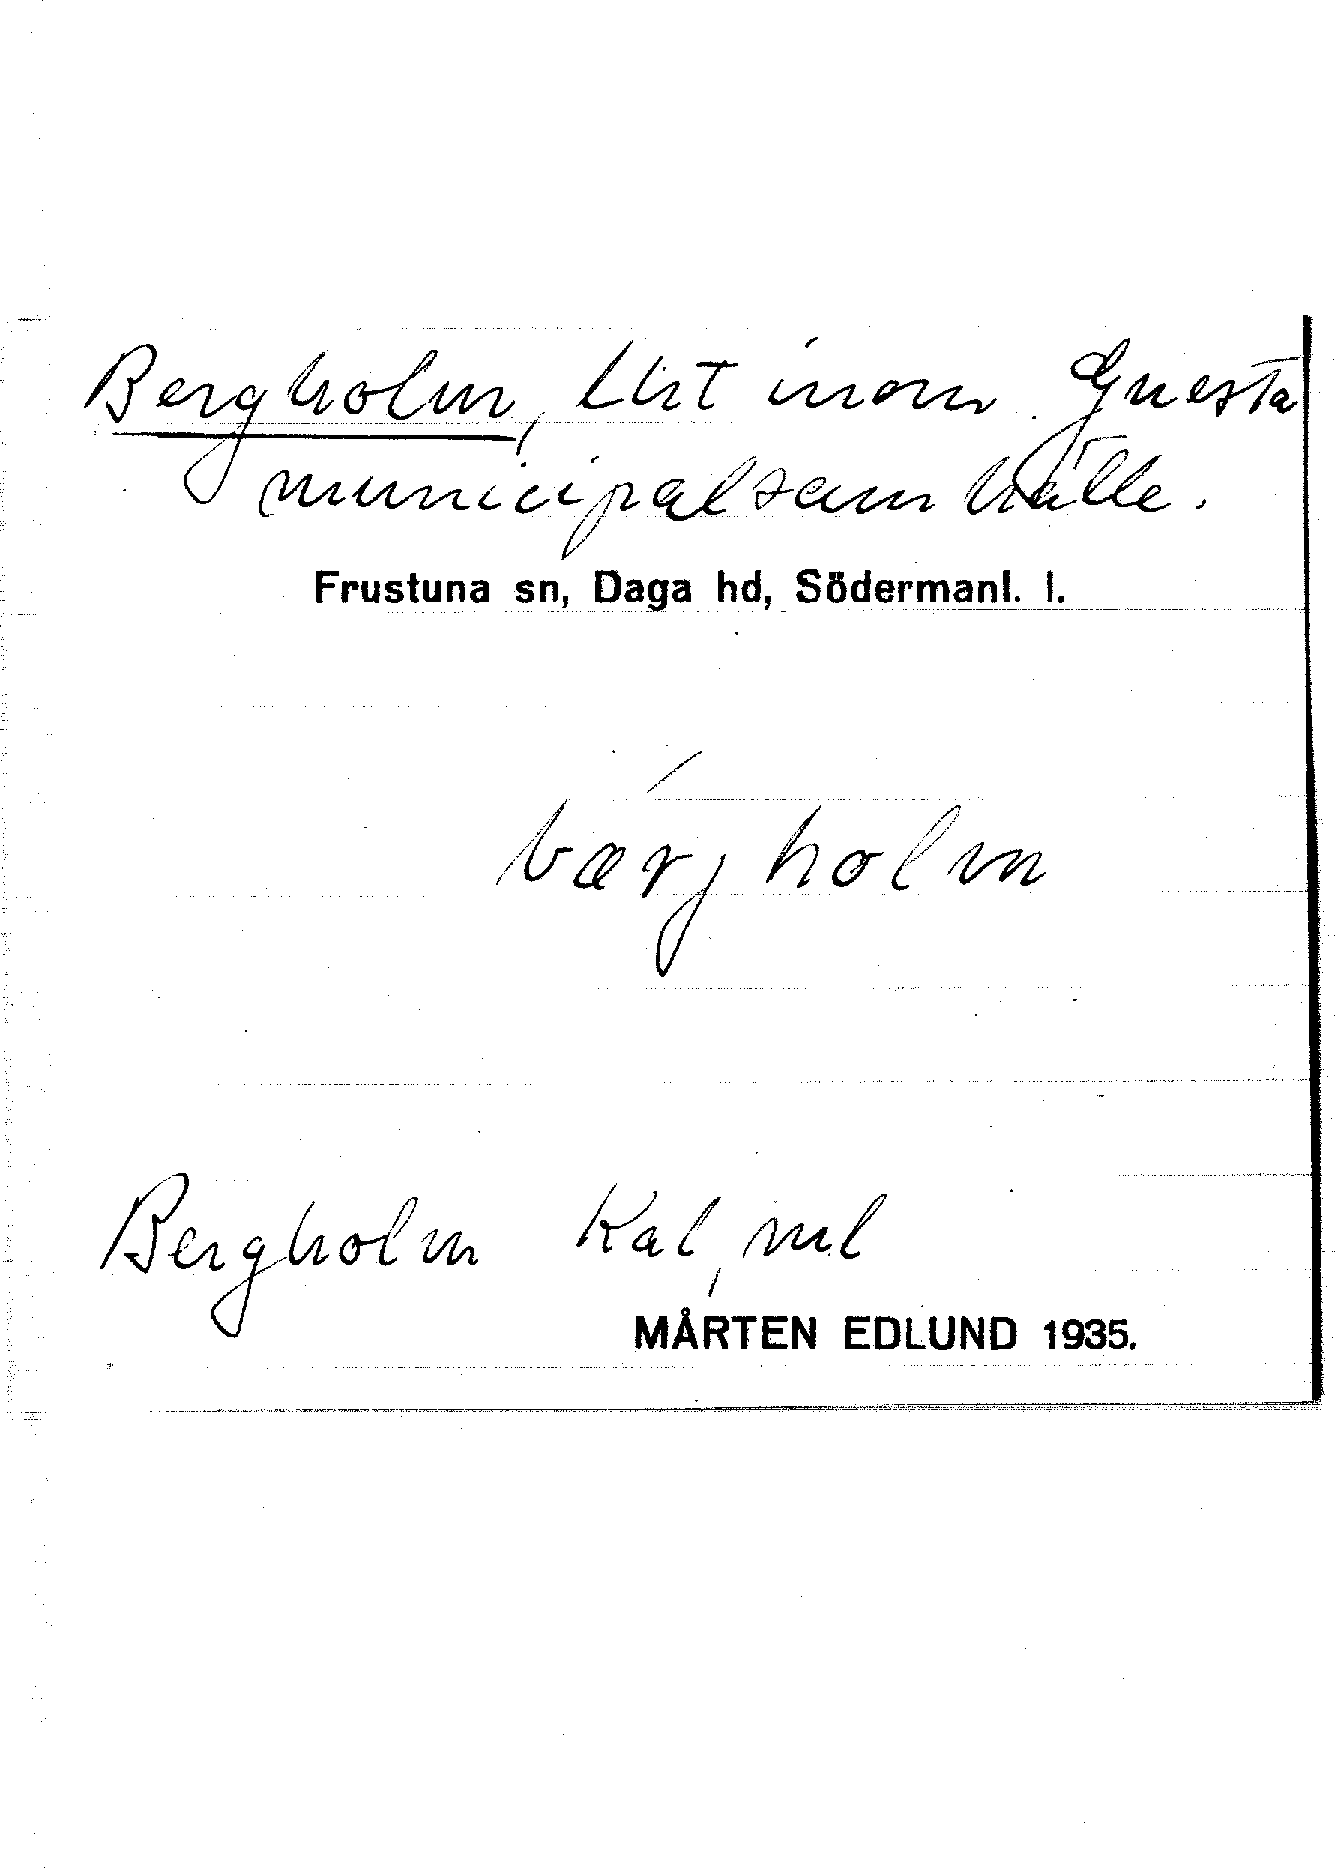 Bergholm, lht inom Gnesta
municipalsamhälle.
Frustuna sn, Daga hd, Södermanl. l.
bærjholm
Bergholm Kal, ml
MÅRTEN EDLUND 1935.